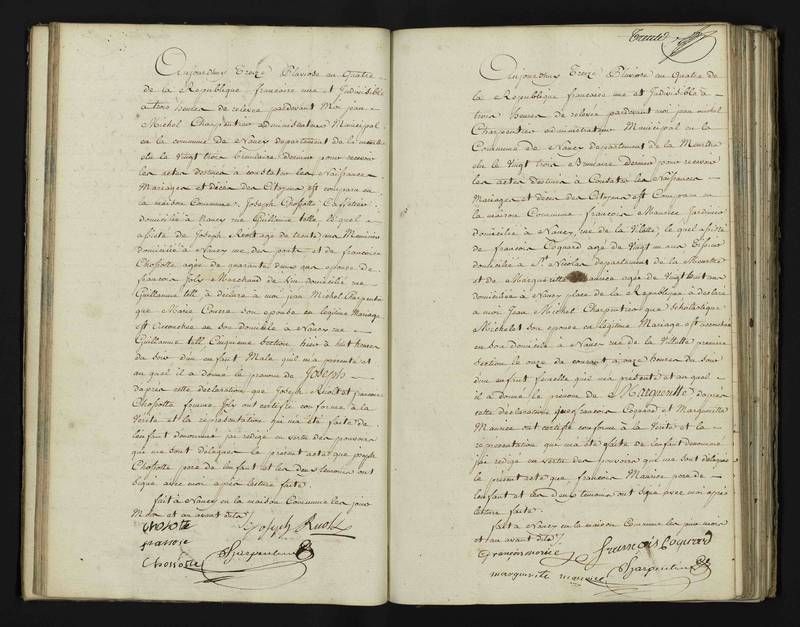 Aujourdhuy Treize Pluviose an Quatre
de la Republique francaise une et Indivisible
a trois heures de relevée pardevant Moi jean
Michel Charpentier administrateur Municipal
en la commune de Nancy departement de la meurthe
elu le Vingt trois brumaire dernier pour recevoir
les actes destinés à constater les Naissances
Mariages et décès des Citoyens est comparu en
la maison Commune Joseph Chossotte
domicilié à Nancy rue Guillaume tell, lequel
assisté de Joseph agé de trente ans Menuisier
domicilié à Nancy rue des ponts et de francoise
Chossotte agée de quarante deux ans epouse de
francois Joly Marchand de Vin domicilié rue
Guillaume tell à déclaré à moi jean Michel Charpentier
que Marie son epouse en legitime Mariage
est accouchée en son domicile à Nancy rue
Guillaume tell Cinquieme Section hier à huit heures
du soir d'un enfant Male qu'il m'a presenté et
au quel il a donné le prenom de Joseph
d'apres cette declaration que Joseph et francoise
Chossotte femme Joly ont certifiée conforme à la
Verité et la représentation qui m'a été faite de
l'enfant denommé jai redigé en vertu des pouvoirs
qui me sont delegués le present acte que joseph
Chossotte pere de l'enfant et les deux temoins ont
signé avec moi apres lecture faite
fait à Nancy en la maison Commune les jour
Mois et an avant dits
chosote Joseph
fransoise
Chossotte Charpentier
Trente
Aujourdhuy Treize Pluviose an Quatre de
la Republique francaise une et Indivisible à
trois heures de relevée pardevant moi jean michel
Charpentier administrateur Municipal en la
Commune de Nancy departement de la Meurthe
élu le Vingt trois Brumaire dernier pour recevoir
les actes destinés à Constater les Naissances
Mariages et décès des Citoyens est Comparu en
la maison Commune francois Maurice Jardinier
domicilié à Nancy rue de la Vilette, lequel assisté
de francois Cognard agé de Vingt un ans
domicilié à St Nicolas departement de la Meurthe
et de Margueritte Maurice agée de Vingt ans
domiciliée à Nancy place de la Republique à déclaré
à moi Jean Michel Charpentier que Scholastique
Michelet son epouse en légitime Mariage est accouchée
en son Domicile à Nancy rue de la Villette premiere
section le onze du courant à onze heures du soir
d'un enfant femelle qu'il m'a présenté et au quel
il a donné le prenom de Margueritte d'apres
cette declaration que francois Cognard et Margueritte
Maurice ont certifié conforme à la Verité et la
representation qui m'a été faite de l'enfant denommé
j'ai redigé en vertu des pouvoirs qui me sont delegués
le present acte que francois Maurice pere de
l'enfant et les deux temoins ont signé avec moi apres
lecture faite
fait à Nancy en la maison Commune les jour mois
et an avant dits
françois morice françois Cognard
margueritte maurice Charpentier